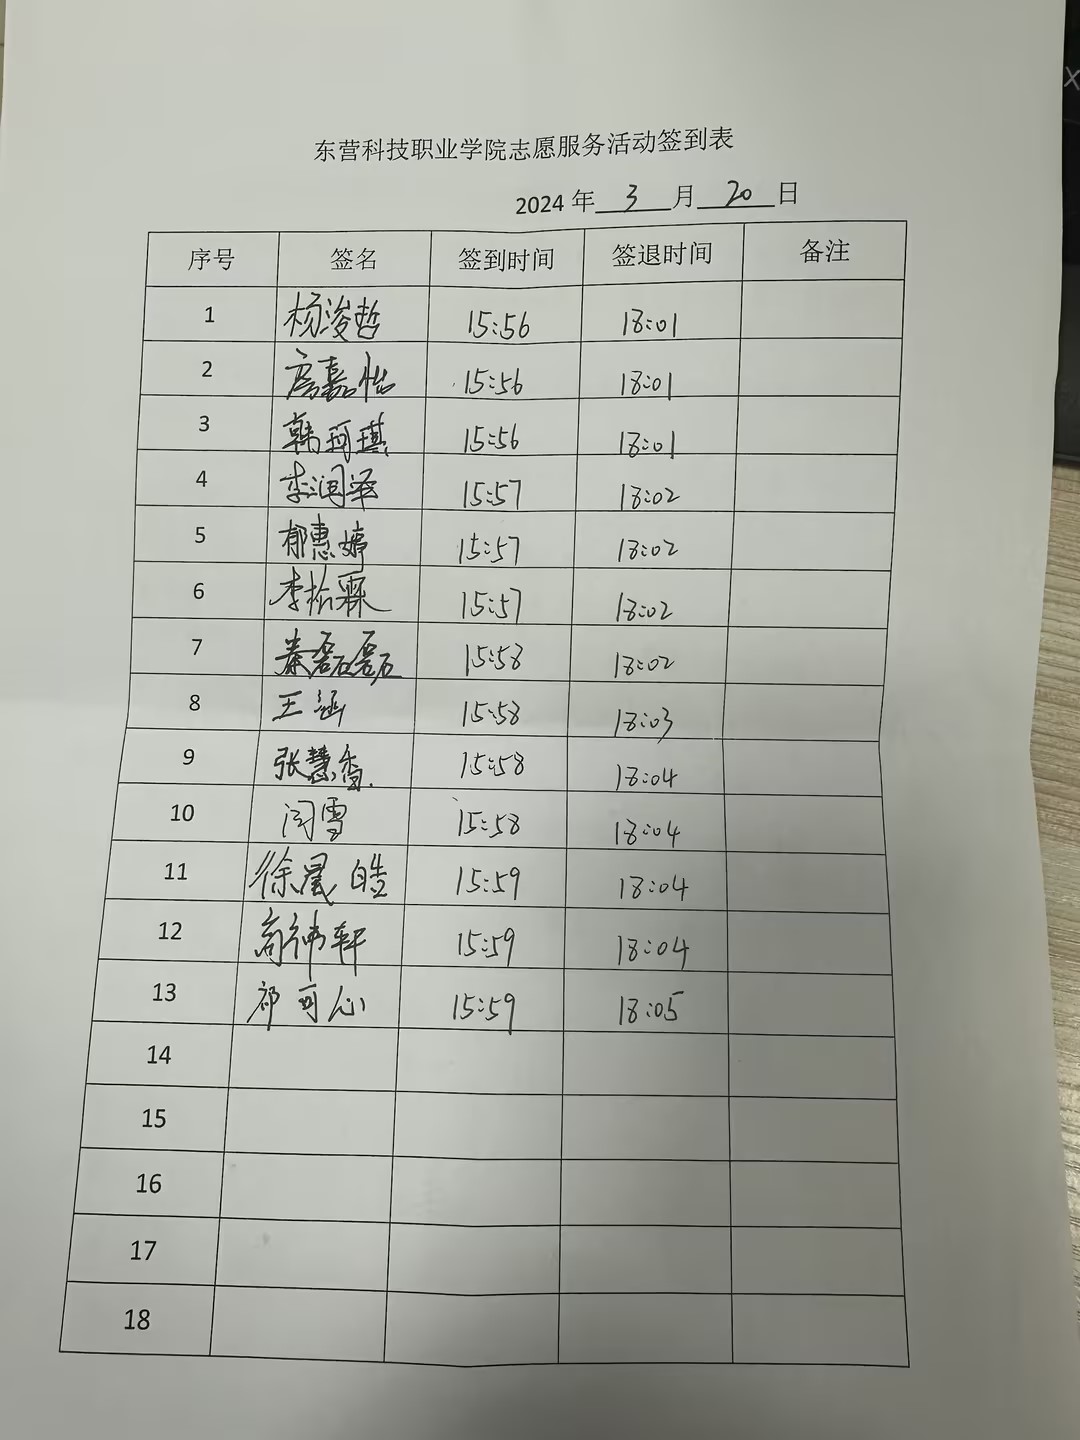 东营科技职业学院志愿服务活动签到表
2024 年 3 月 20 日
序号 签名 签到时间 签退时间 备注
1 杨浚哲 15:56 18:01
2 房嘉怡 15:56 18:01
3 韩珂琪 15:56 18:01
4 李润泽 15:57 18:02
5 郁惠婷 15:57 18:02
6 李松霖 15:57 18:02
7 秦磊磊 15:58 18:02
8 王涵 15:58 18:03
9 张慧香 15:58 18:04
10 闫雪 15:58 18:04
11 徐晨皓 15:59 18:04
12 高祎轩 15:59 18:04
13 祁可心 15:59 18:05
14
15
16
17
18